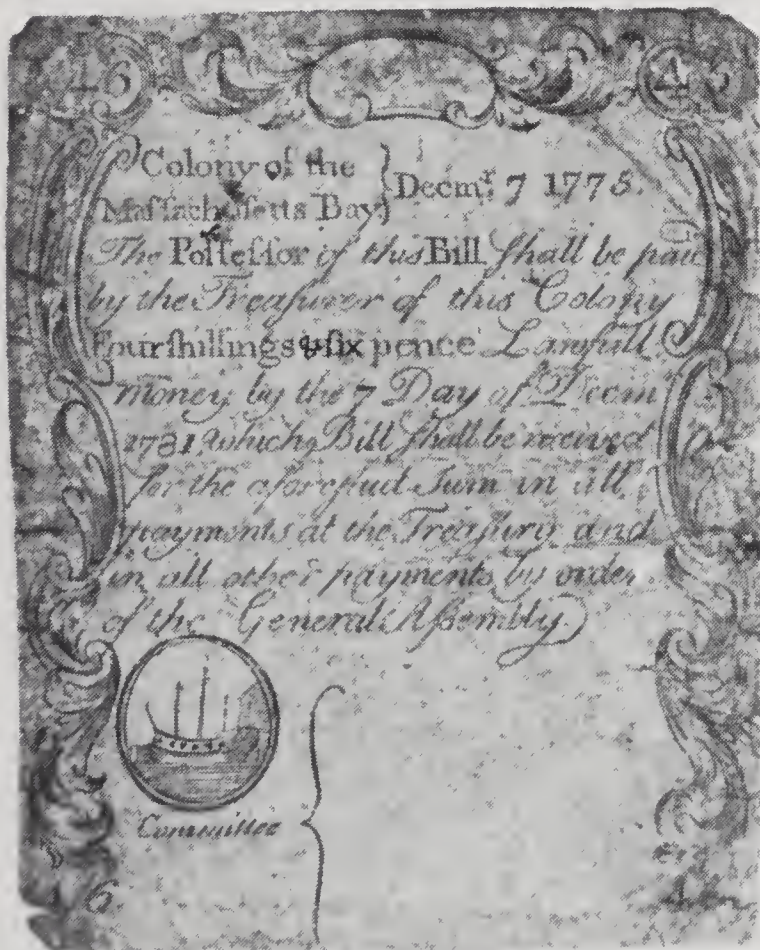 4 6 4 6
Colony of the } Decmr. 7 1775.
Maſſachuſetts Bay
The Poſſeſſor of this Bill ſhall be paid
by the Treaſurer of this Colony
Four ſhillings & ſix pence Lawfull
money by the 7 Day of Decmr
1781, which Bill ſhall be received
for the aforeſaid Sum in all
payments at the Treaſury and
in all other payments by order
of the General Aſſembly
Committee
6